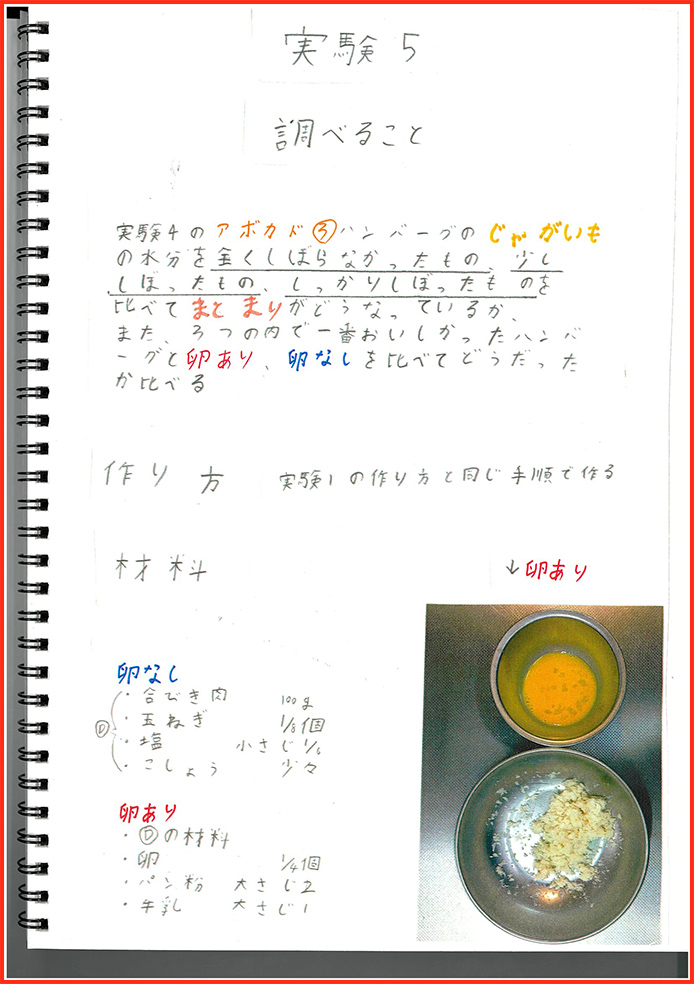 実験5
調べること
実験4のアボカド③ハンバーグのじゃがいも
の水分を全くしぼらなかったもの、少し
しぼったもの、しっかりしぼったものを
比べてまとまりがどうなっているか、
また、3つの内で一番おいしかったハンバ
ーグと卵あり、卵なしを比べてどうだった
か比べる
作り方 実験1の作り方と同じ手順で作る
材料
↓卵あり
卵なし
Ⓓ
・合びき肉 100g
・玉ねぎ 1/8個
・塩 小さじ1/6
・こしょう 少々
卵あり
・Ⓓの材料
・卵 1/4個
・パン粉 大さじ2
・牛乳 大さじ1